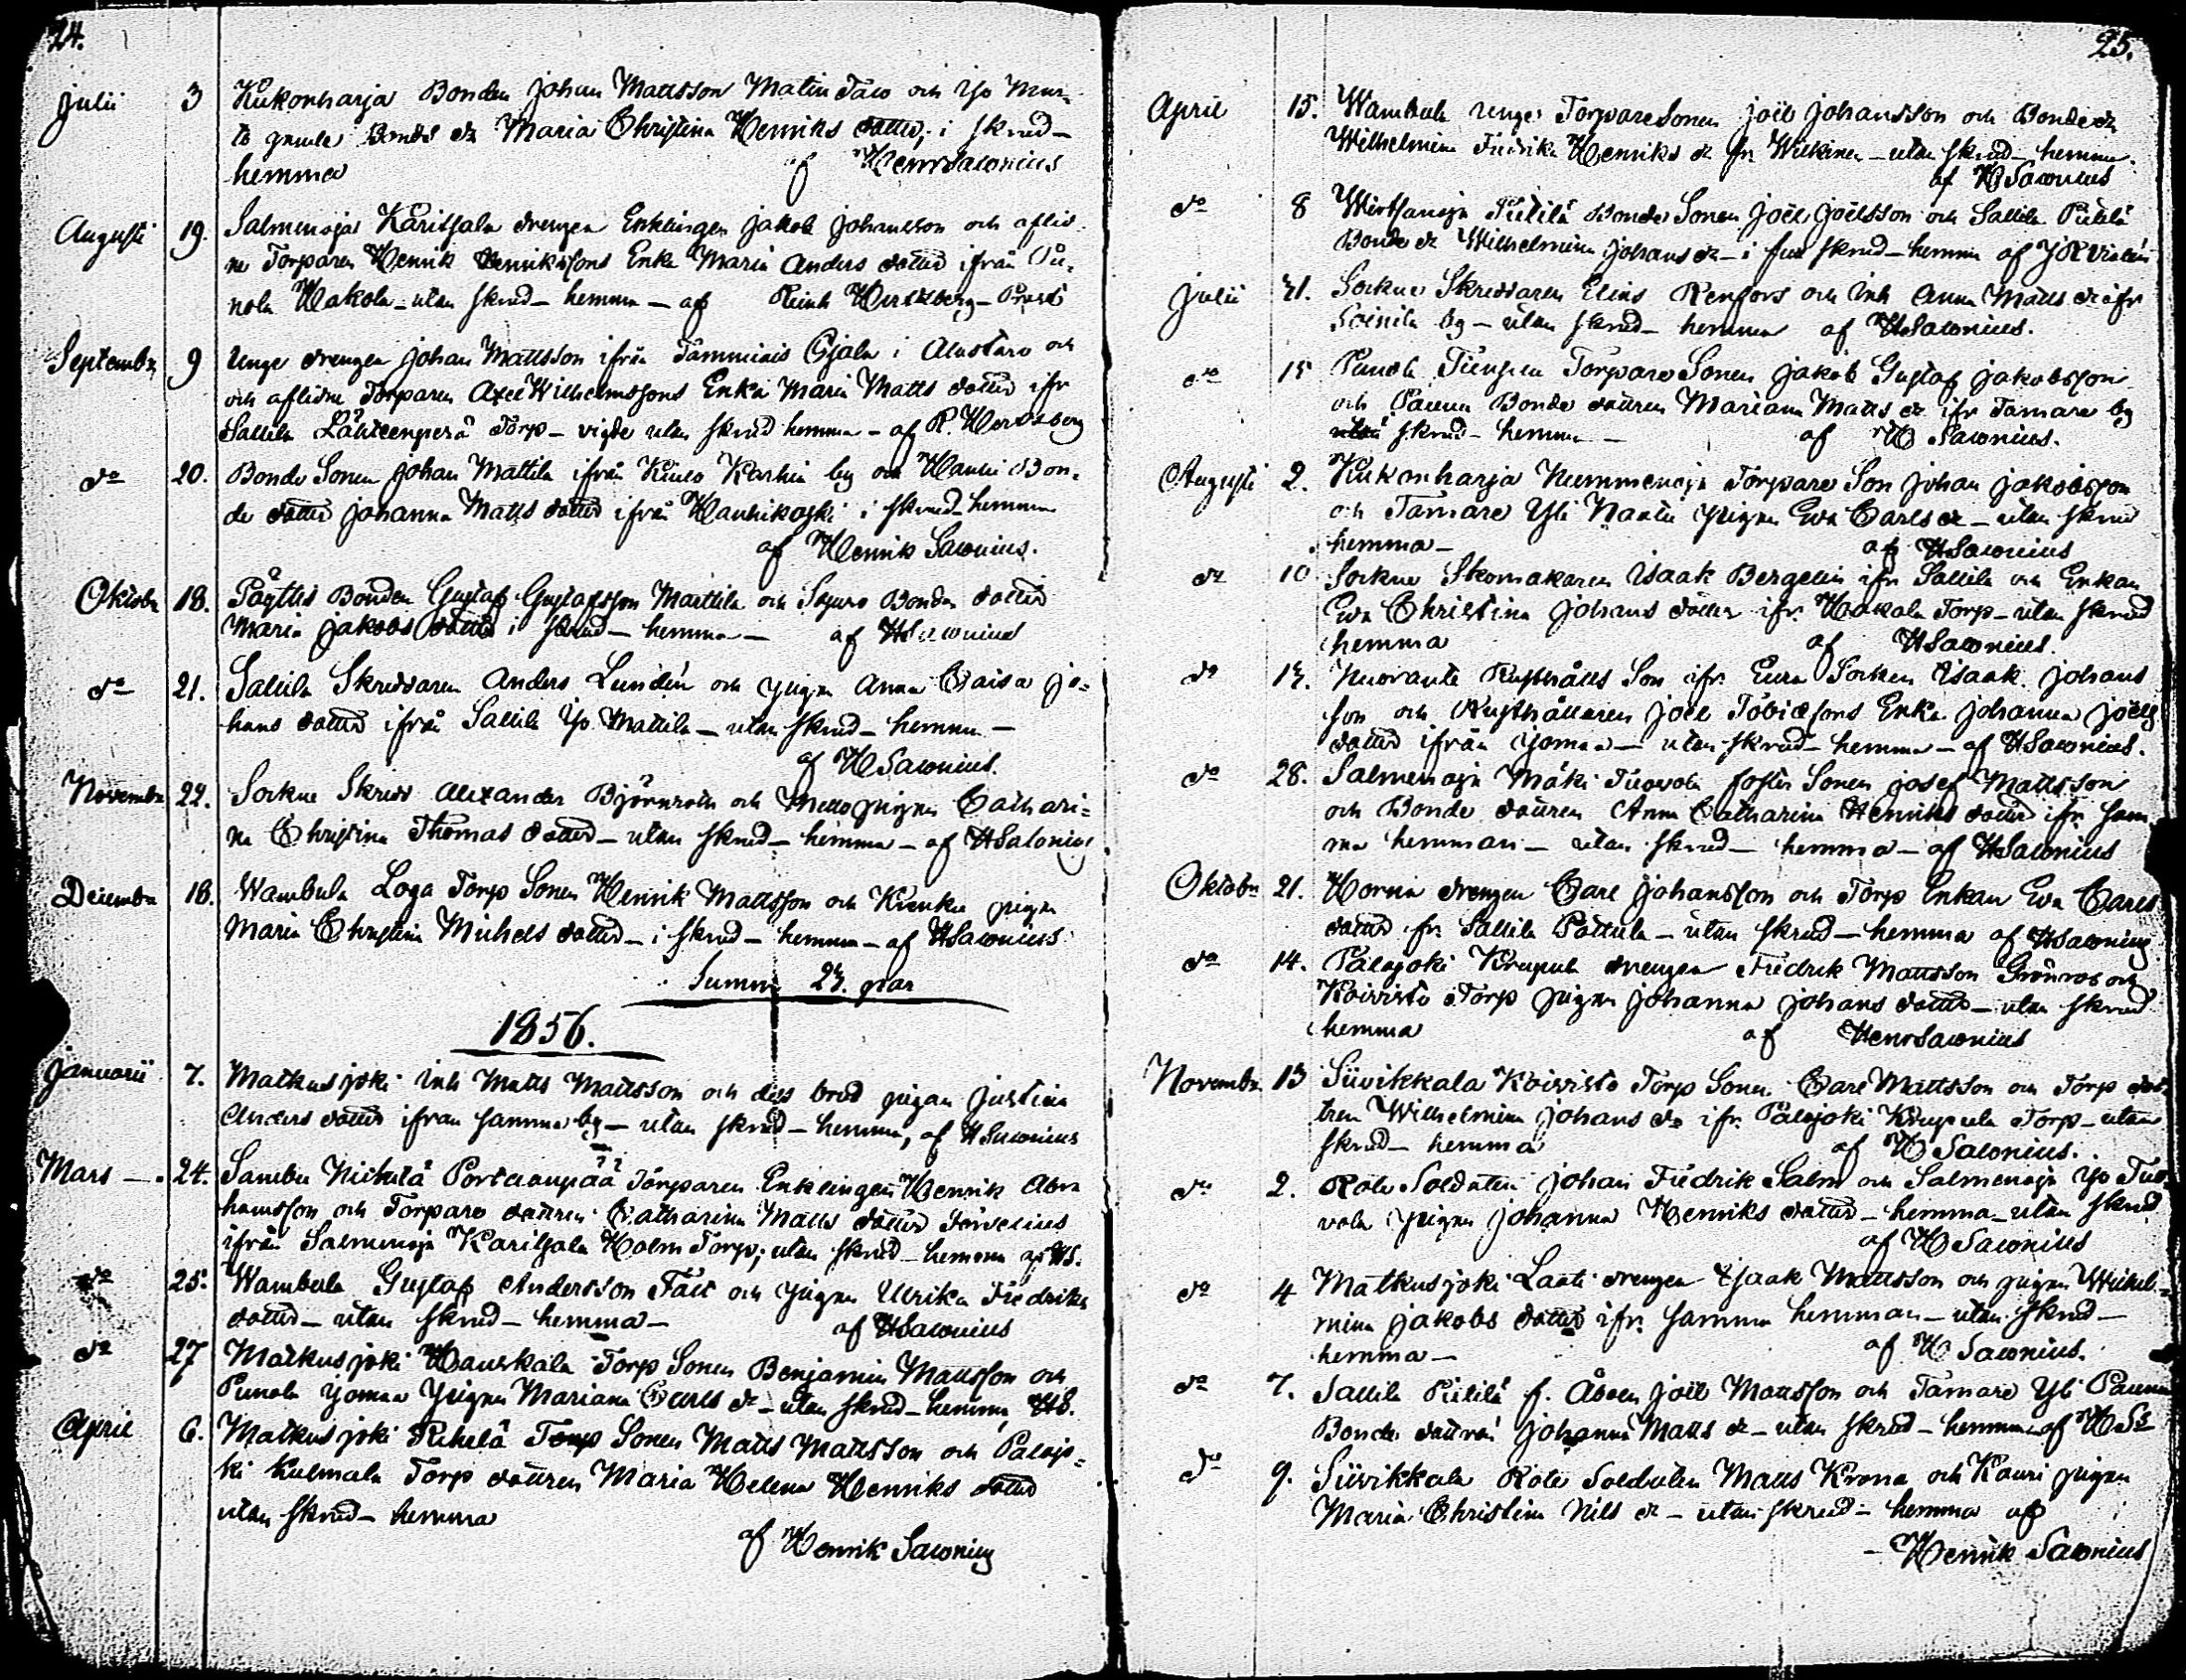 24.
Julii 3 Kukonharja Bonden Johan Mattsson Matin Talo och Yso
to gamla Bonde dr Maria Christina Henriks dotter, i skrud-
hemma af HenrSalonius
Augusti 19. Salmenoja Karitsala drengen Enklingen Jakob Johansson och aflid-
ne Torparen Henrik Henrikssons Enka Maria Anders dotter ifrån Pu-
nola Hakola - utan skrud - hemma - af Reinh Hertzberg - Prost
Septembr 9 Unge drengen Johan Mattsson ifrån Tammiais Gjala i Alastaro och
och aflidne Torparen Axel Wilhelmssons Enka Maria Matts dotter ifr
Sallila Lähteenperä Torp - vigde utan skrud hemma - af R. Hertzberg
do 20. Bonde Sonen Johan Mattila ifrån Kiulo Karhia by och Hanhi Bon-
de dotter Johanna Matts dotter ifrån Hanhikoski i skrud hemma
af Henrik Salonius.
Oktobr 18. Påyttis Bonden Gustaf Gustafsson Marttila och Sguro Bonden dotter
Maria Jakobs dotter i skrud - hemma - af HSalonius
do 21. Sallila Skreddaren Anders Lundén och pigan Anna Caisa Jo-
hans dotter ifrån Sallila Yso Mattila - utan skrud - hemma -
af HSalonius.
Novembr 22. Sockne Skredd Alexander Björnroth och Mello pigan Cathari-
na Christina Thomas dotter - utan skrud - hemma - af HSalonius
Decembr 18. Wambula Loga Torp Sonen Henrik Mattsson och Kienka pigan
Maria Christina Michels dotter - i skrud - hemma - af HSalonius
Summa 24. par
1856.
Januarii 7. Matkusjoki Inh Matts Mattsson och dess brud pigan Justina
Anders dotter ifran samma by - utan skrud - hemma, af HSalonius
Mars - . 24. Sambu Nichilä Portaanpää Torparen Enklingen Henrik Abra
hamsson och Torpare dottren Catharina Matts dotter Törvelius
ifrån Salmenoja Karitsala Holm Torp; utan skrud - hemma af HS.
do 25. Wambula Gustaf Andersson Fält och pigan Ulrika Fredriks
dotter - utan skrud - hemma - af HSalonius
do 27 Matkusjoki Hauskala Torp Sonen Benjamin Mattsson och
Punola Yomaa Pigan Mariana Carls dr - utan skrud - hemma HS.
April 6. Matkusjoki Rihelä Torp Sonen Matts Mattsson och Palojo-
ki Kulmala Torp dottren Maria Helena Henriks dotter
utan skrud - hemma
af Henrik Salonius
25.
April 15. Wambula unge Torpare Sonen Joel Johansson och Bonde dr
Wilhelmina Fredrika Henriks dr fr Wirkinen - utan skrud - hemma.
af HSalonius
do 8 Wirtsanoja Pietilä Bonde Sonen Joël Joëlsson och Sallila Pietilä
Bonde dr Wilhelmina Johans dr - i full skrud - hemma af JRViolin
Julii 21. Sockne Skreddaren Elias Renfors och Inh Anna Matts dr ifr
Soinila by - utan skrud - hemma af HSalonius.
do 15 Punola Torpare Sonen Jakob Gustaf Jakobsson
och Bonde dottren Mariana Matts dr ifr Tamare by
skrud - hemma - af H Salonius.
Augusti 2. Kukonharja Nummenoja Torpare Son Johan Jakobsson
och Tamare Yli Naatu pigan Eva Carls dr - utan skrud
hemma - af HSalonius
dr 10 Sockne Skomakaren Isaak Bergelin ifr Sallila och Enkan
Eva Christina Johans dotter ifr. Hakala Torp - utan skrud
hemma af HSalonius.
do 12. Nuoranta Rusthålls Son ifr. Eura Socken Isaak Johans
son och Rusthållaren Joel Tobiæsons Enka Johanna Joels
dotter ifrån Yomaa - utan skrud - hemma - af HSalonius.
do 28. Salmenoja Mäki Tuovola foster Sonen Josef Mattsson
och Bonde dottren Anna Catharina Henriks dotter ifr sam
ma hemman - utan skrud - hemma - af HSalonius
Oktobr 21. Horsia drengen Carl Johansson och Torp Enkan Eva Carls
dotter fr. Sallila Pottula - utan skrud - hemma af HSalonius
do 14. Palojoki Krupula drengen Fredrik Mattsson Grönroos och
Koivisto Torp pigan Johanna Johans dotter - utan skrud
hemma af HenrSalonius
Novembr 13 Siivikkala Koivisto Torp Sonen Carl Mattsson och Torp dot-
tren Wilhelmina Johans dr ifr. Palojoki Krupula Torp - utan
skrud - hemma af H Salonius.
do 2. Rote Soldaten Johan Fredrik Salm och Salmenoja Yso Tuo-
vola pigan Johanna Henriks dotter - hemma - utan skrud
af H Salonius
do 4 Matkusjoki Laati drengen Isaak Mattsson och pigan Wilhel-
mina Jakobs dotter ifr. samma hemman - utan skrud -
hemma - af H Salonius.
do 7. Sallila Pietilä f. Åboen Joel Mattsson och Tamare Yli Pauna
Bonde dottren Johanna Matts dr - utan skrud - hemma af HSs
do 9. Siivikkala Rote Soldaten Matts Krona och Kauri pigan
Maria Christina Nils dr - utan skrud - hemma af
- Henrik Salonius